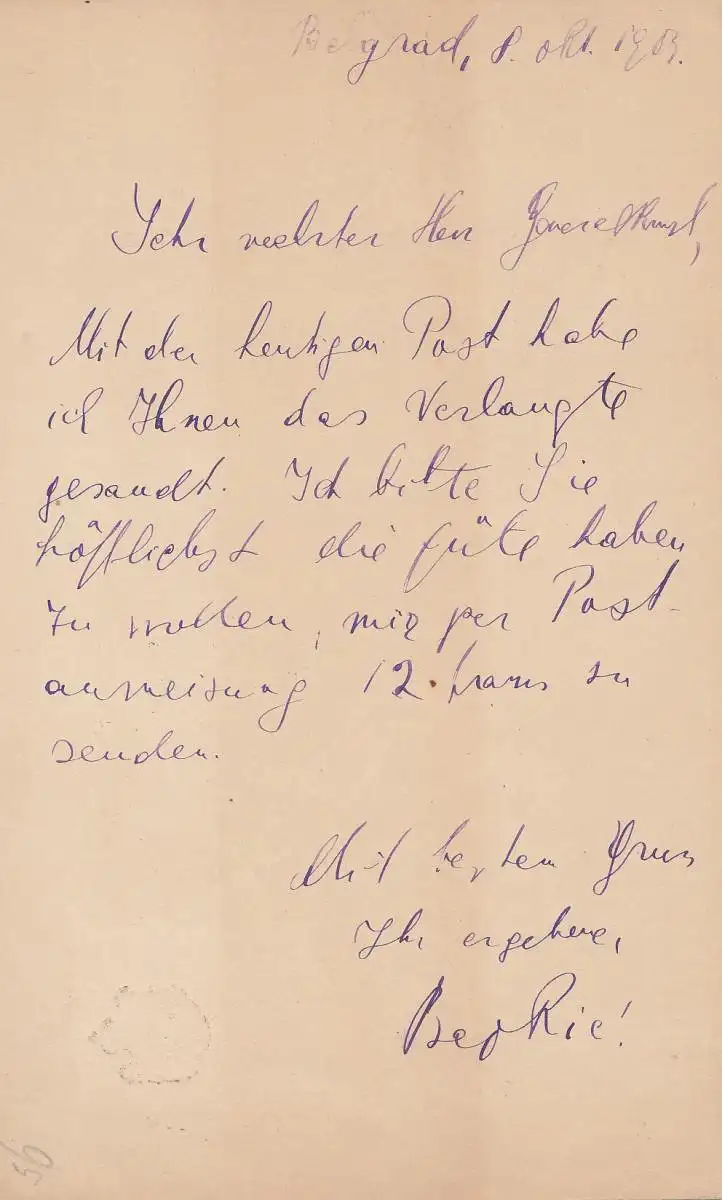 Belgrad, 8. okt. 1903.
Sehr Herr
Mit der heutigen Post habe
ich Ihnen das Verlangte
gesandt. Ich bitte Sie
höfflichst die Güte haben
zu wollen, mir per Post-
anweisung 12 francs zu
senden.
Mit besten Gruss
Ihr ergebene,
56